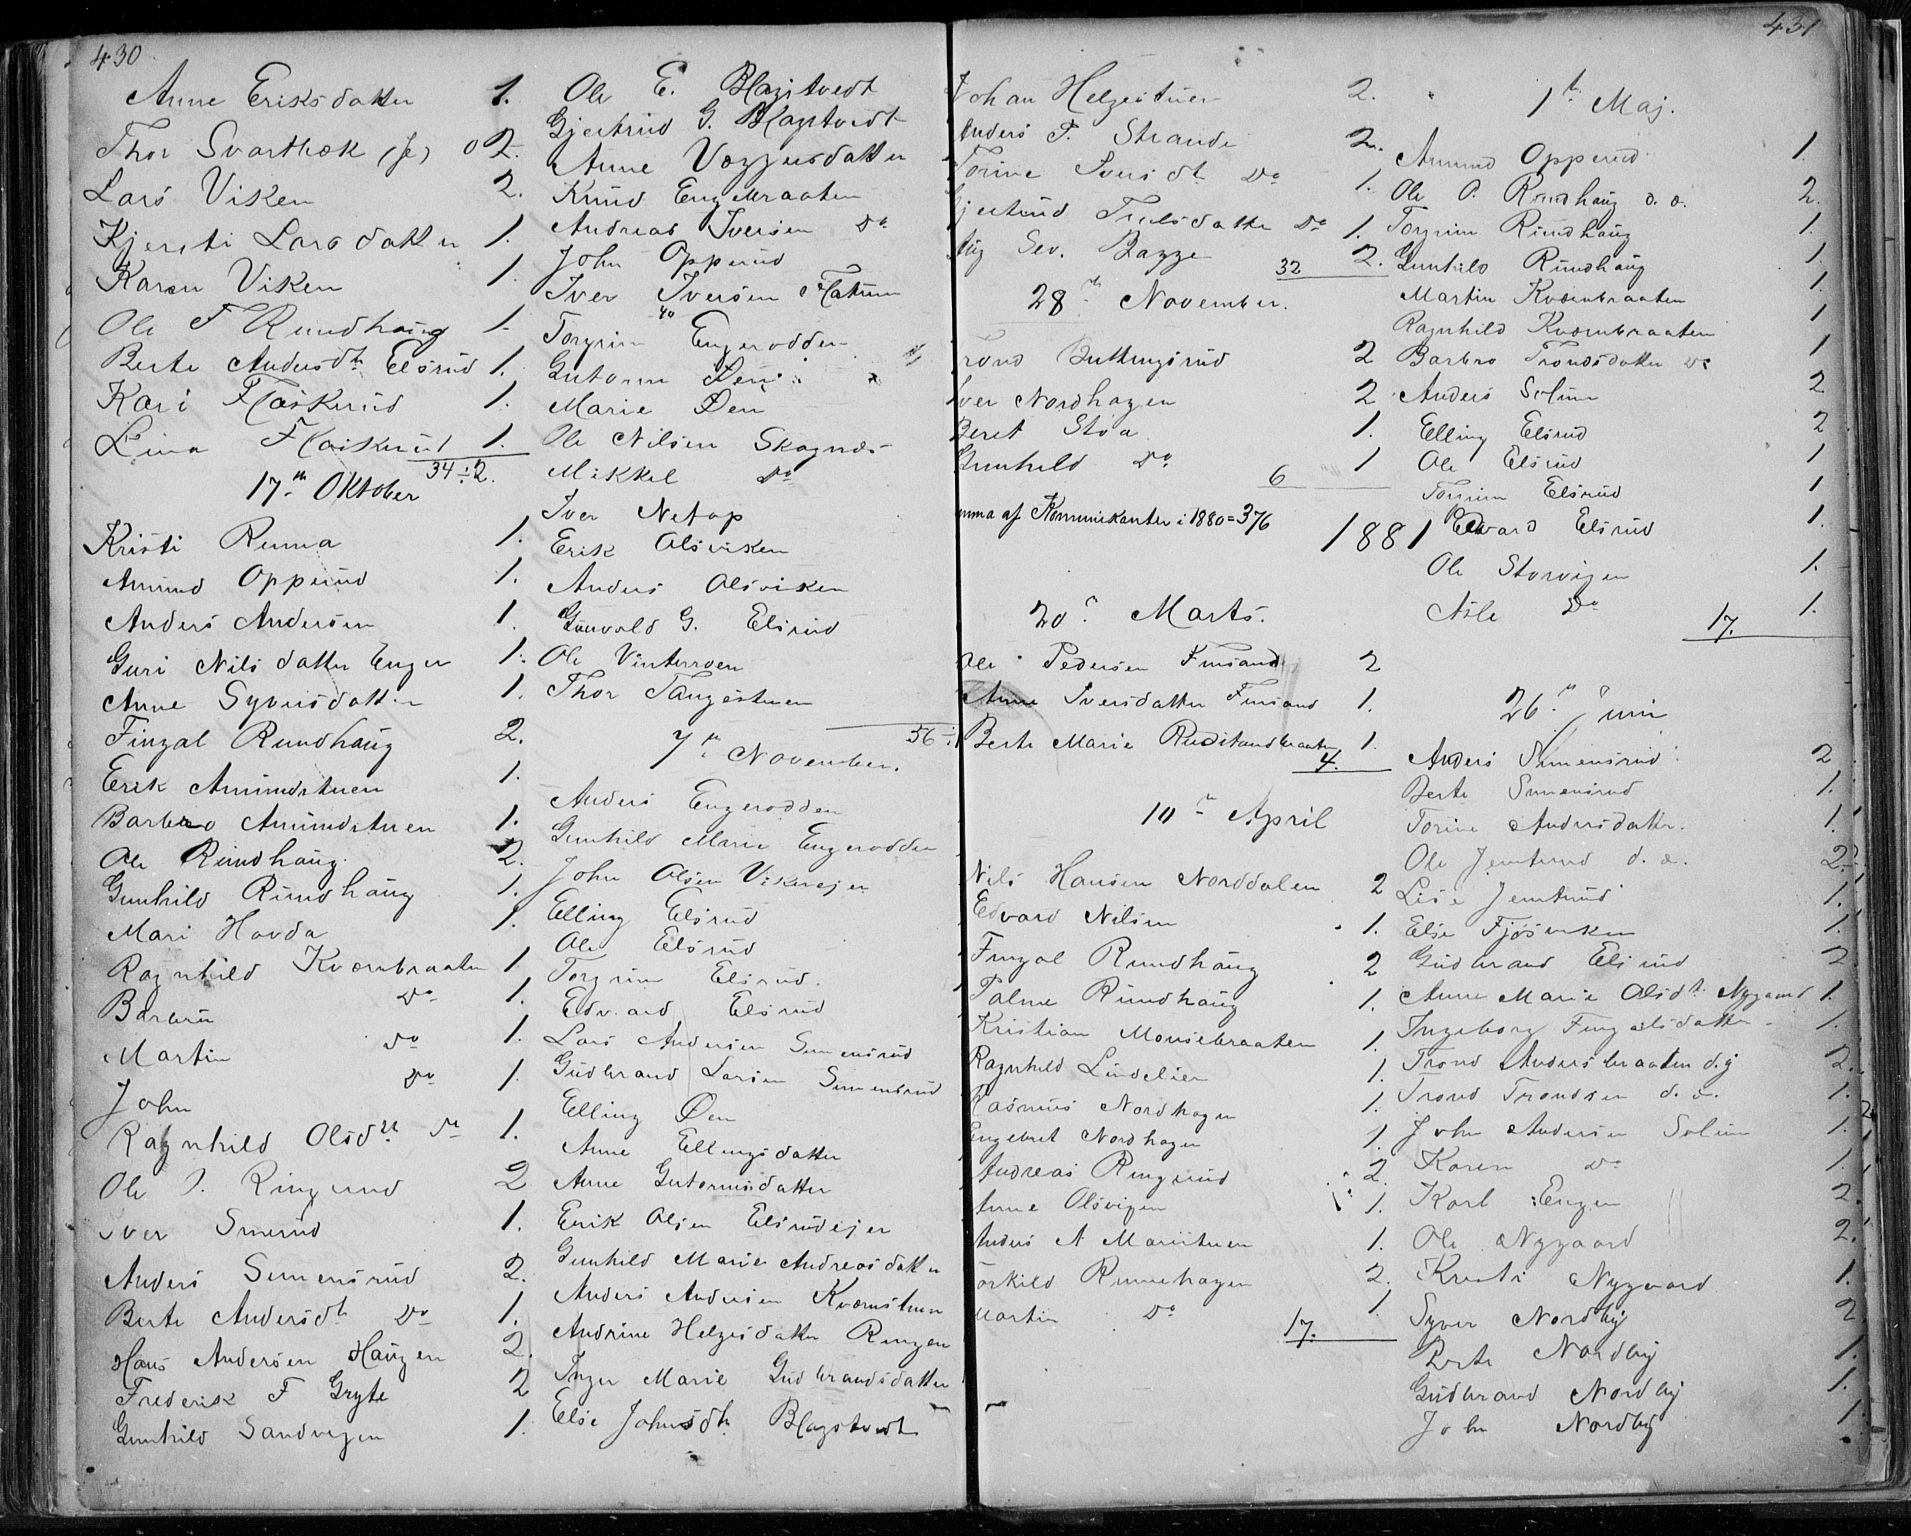 430
Anne Eriksdatter 1.
Thor Svartbæk (Je) 0 2.
Lars Viken 2.
Kjersti Larsdatter 1.
Karen Viken 1.
Ole F Rundhaug 1.
Berte Andersdtr Elsrud 1.
Kari Flaskerud 1.
Lina Flaskerud 1.
34 ÷ 2.
17de Oktober
Kristi Renna 1.
Amund Opperud 1.
Anders Andersen 1.
Guri Nilsdatter Enger 1.
Anne Syversdatter 1.
Fingal Rundhaug 2.
Erik Amundstuen 1.
Barbro Amundstuen 1.
Ole Rundhaug. 2.
Gunhild Rundhaug 1.
Mari Hovda 1.
Ragnhild Kvernbraaten 1
Barbru Do 1.
Martin Do 1.
John Do 1.
Ragnhild Olsdtr Do 1.
Ole Ringerud 2
Iver Smerud 1.
Anders Simensrud 2.
Berte Andersdtr Do 1.
Hans Andersen Haugen 2.
Frederik F Gryte 2
Gunhild Sandvigen 1.
Ole E. Blagstvedt
Gjertrud G. Blagstvedt
Anne Vaggersdatter
Knud Engebraaten
Andreas Iversen Do
John Opperud
Iver Iversen Flatum
40
Torgrim Engerodden
Gutorm Øen
Marie Øen
Ole Nilsen Skagnæs
Mikkel Do
Iver Netop
Erik Olsviken
Anders Olsviken
Gunvald G. Elsrud
Ole Vinterroen
Thor Tangestuen
56 ÷ 1
7de November.
Anders Engerodden
Gunhild Marie Engerodden
John Olsen Vikereje
Elling Elsrud
Ole Elsrud
Torgrim Elsrud.
Edvard Elsrud
Lars Andersen Simensrud
Gudbrand Larsen Simensrud
Elling Øen
Anne Ellingsdatter
Anne Gutormsdatter
Erik Olsen Elsrudejer
Gunhild Marie Andreasdatter
Anders Andersen Kvernstuen
Andrine Helgesdatter Ringen
Inger Marie Gudbrandsdatter
Else Johnsdtr Blagstvedt
431
Johan Helgestuen 2.
Anders P. Strande 2.
Torine Iversdtr Do 1.
Gjertrud Trulsdatter Do 1.
Stig Sev. Bagge 2.
32
28de November.
Trond Buttingsrud 2
Iver Nordhagen 2
Beret Stoa 1.
Gunhild Do 1
6
Summa af Kommunikanter i 1880 = 376
1881
20de Marts.
Ole Pedersen Finsand 2
Anne Iversdatter Finsand 1.
Berte Marie Rudstandbraaten 1.
4.
10de April
Nils Hansen Norddalen 2
Edvard Nilsen 1.
Fingal Rundhaug 2
Palme Rundhaug 1.
Kristian Monsebraaten 1.
Ragnhild Lindelien 1.
Rasmus Nordhagen 1.
Engebret Nordhagen 1.
Andreas Ringerud 2.
Anne Olsvigen 1.
Anders A Mariituen 1.
Torkild Runnehagen 2.
Martin Do 1
17.
1ste Maj.
Amund Opperud 1.
Ole O. Rundhaug d. æ. 2.
Torgrim Rundhaug 1.
Gunhild Rundhaug 1.
Martin Kvernbraaten 1
Ragnhild Kvernbraaten 1
Barbro Trondsdatter Do 1
Anders Solum 2
Elling Elsrud 2
Ole Elsrud 1
Torgrim Elsrud 1
Edvard Elsrud 1.
Ole Storvigen 1.
Asle Do 1.
17.
26de Juni
Anders Simensrud 2
Berte Simensrud 1.
Torine Andersdatter. 1.
Ole Jemtrud d. æ. 2.
Lise Jemtrud 1.
Else Fjøsviken 1.
Gudbrand Elsrud 2
Anne Marie Olsdtr Nygaard 1.
Ingeborg Fingalsdatter 1.
Trond Andersbraaten d.y 2.
Trond Trondsen d. æ. 1.
John Andersen Solum 1.
Karen Do 1.
Karl Engen 2.
Ole Nygaard 2.
Kristi Nygaard 1.
Syver Nordby 2
Berte Nordby 1.
Gudbrand Nordby 1.
John Nordby 1.